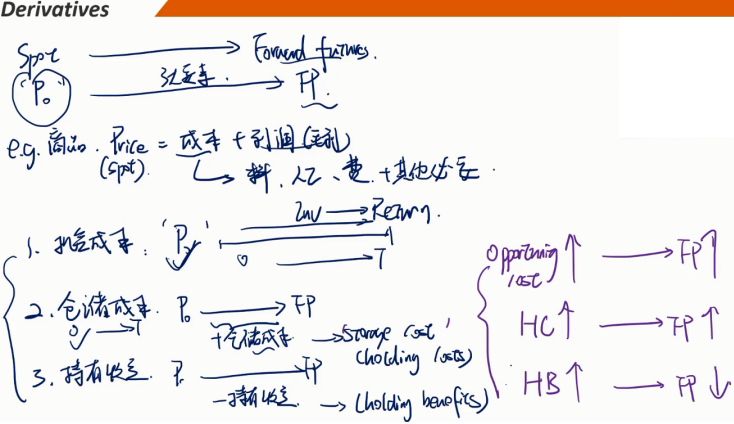 Derivatives
Spot → Forward futures.
"P₀" → FP.
e.g. 商品. Price = 成本 + 利润 (毛利)
(spot). → 料、人工、费 + 其他
Inv → Return.
1. 机会成本: 'P₀' 0 → T
2. 仓储成本. P₀ → FP
0 → T +仓储成本 → Storage cost
(holding costs)
3. 持有收益. P₀ → FP
-持有收益 → (holding benefits)
Opportunity cost ↑ → FP ↑
HC ↑ → FP ↑
HB ↑ → FP ↓